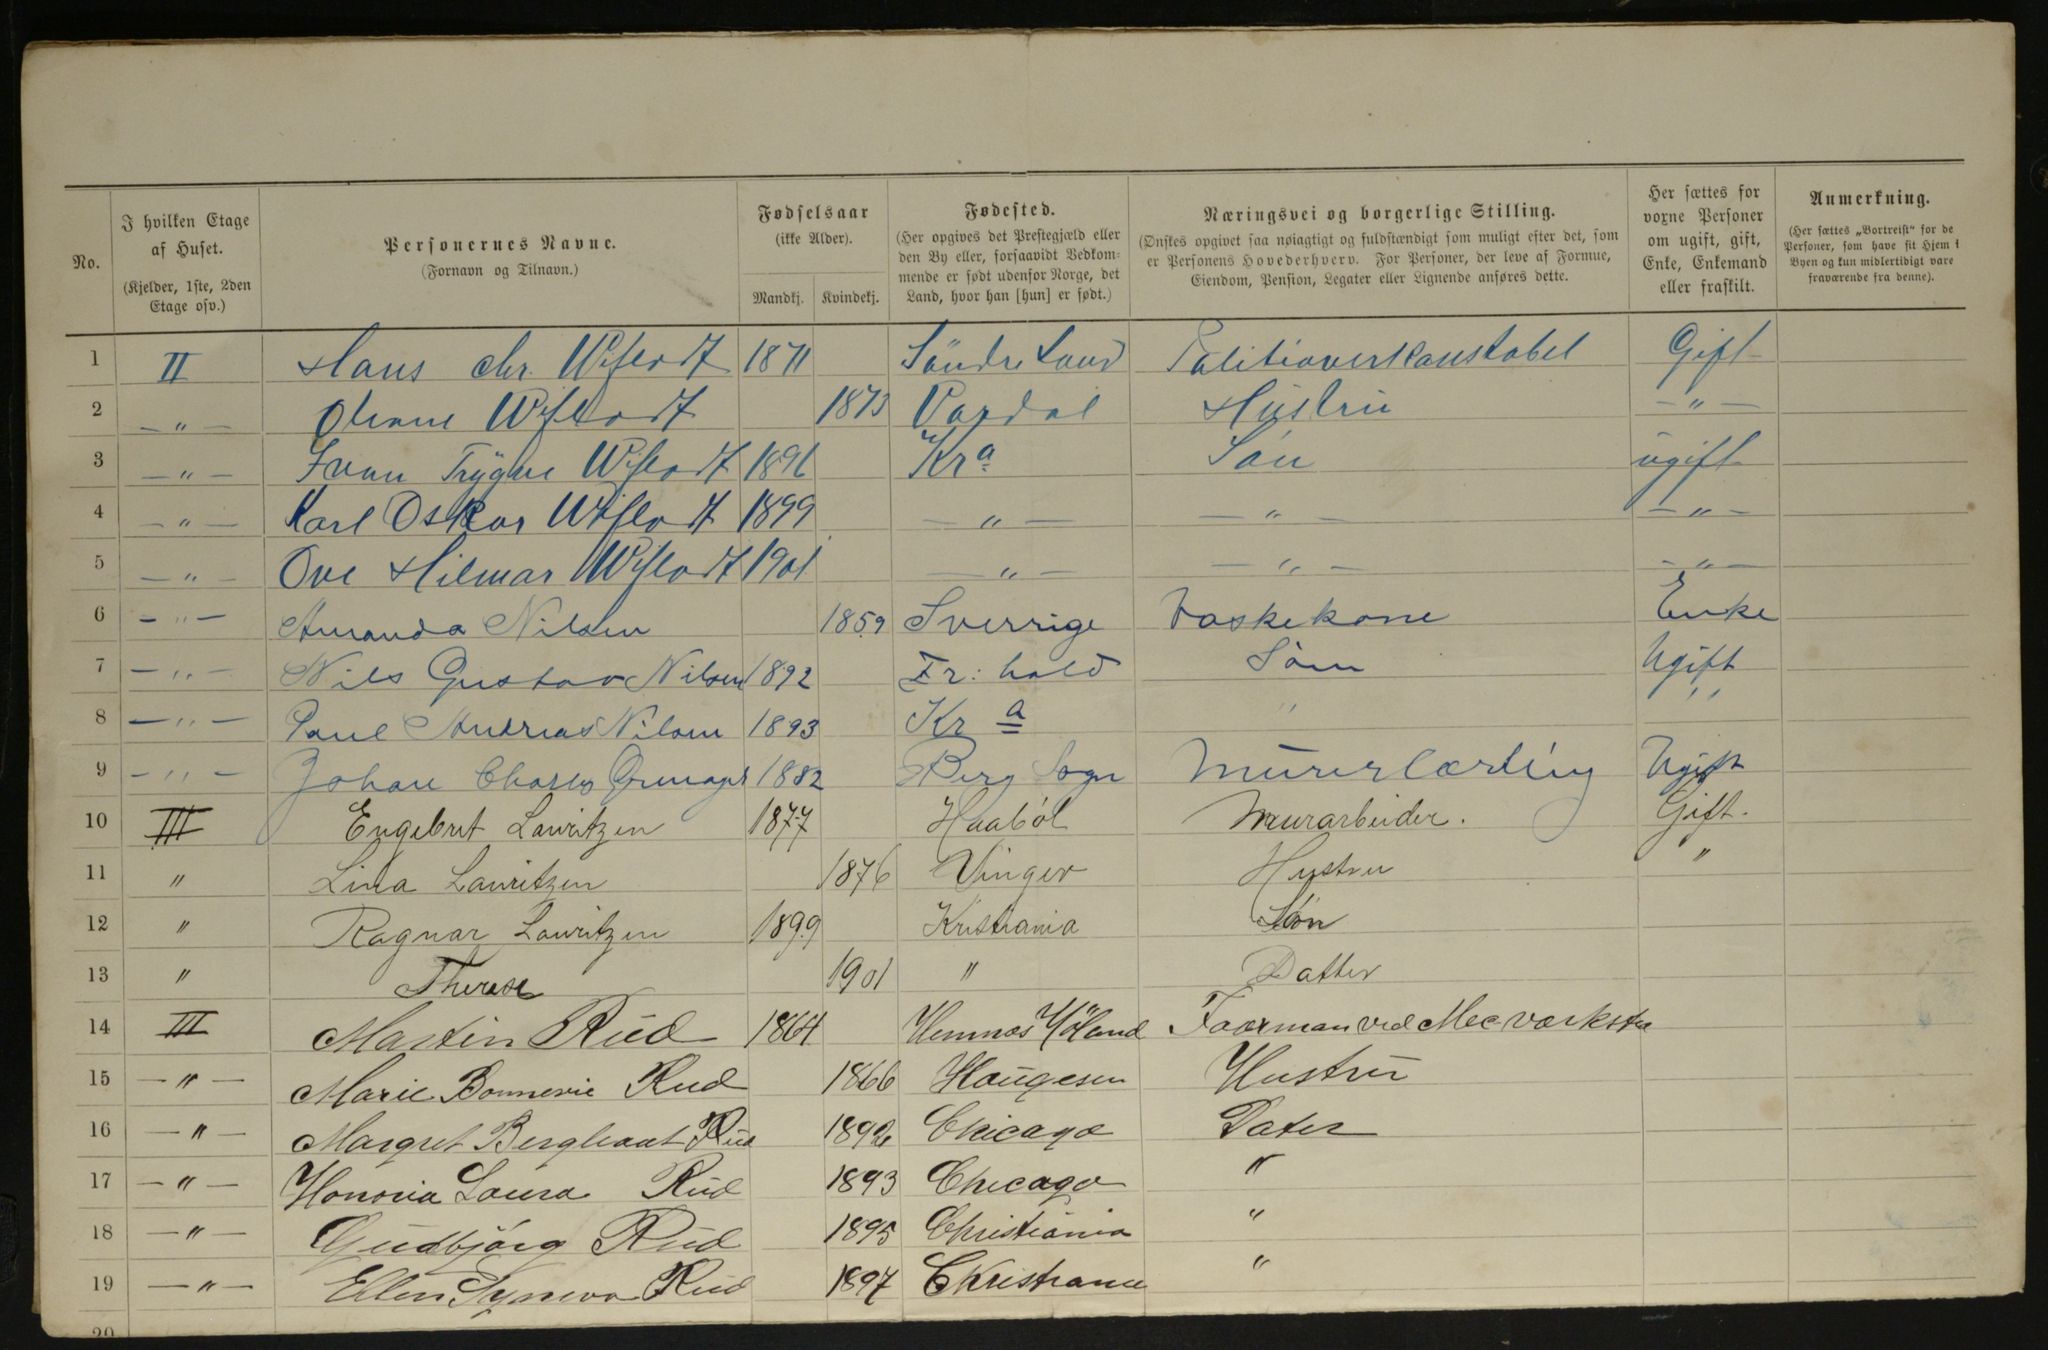 No. | I hvilken Etage af Huset. (Kjelder, 1ste, 2den Etage osv.) | Personernes Navne. (Fornavn og Tilnavn.) | Fødselsaar (ikke Alder). Mandkj. | Kvindekj. | Fødested. (Her opgives det Prestegjæld eller den By eller, forsaavidt Vedkommende er født udenfor Norge, det Land, hvor han [hun] er født.) | Næringsvei og borgerlige Stilling. (Ønskes opgivet saa nøiagtigt og fuldstændigt som muligt efter det, som er Personens Hovederhverv. For Personer, der leve af Formue, Eiendom, Pension, Legater eller Lignende anføres dette. | Her sættes for voxne Personer om ugift, gift, Enke, Enkemand eller fraskilt. | Anmerkning. (Her sættes „Bortreist“ for de Personer, som have sit Hjem i Byen og kun midlertidigt vare fraværende fra denne).
1 II Hans Chr. 1871 Söndre Land Politioverkonstabel Gift
2 — " — 1873 Vardal Hustru — " —
3 — " — Trygve 1896 Kra Sön ugift
4 — " — Karl Oskar 1899 — " — — " — — " —
5 — " — Ove Hilmar 1901 — " — — " — — " —
6 — " — Amanda Nilsen 1859 Sverrige Vaskekone Enke
7 — " — Nils Gustav Nilsen 1892 Fr: hald Sön Ugift
8 — " — Paul Andreas Nilsen 1893 Kra " "
9 — " — Johan Charles 1882 Berg Sogn Murerlærling Ugift
10 III Engebret Lauritzen 1877 Haaböl Murarbeider. Gift.
11 " Lina Lauritzen 1876 Vinger Hustru "
12 " Ragnar Lauritzen 1899 Kristiania Sön
13 " Therese 1901 " Datter
14 III Martin Rud 1864 Hemnæs Höland Foorman ved Mec værksted
15 — " — Marie Bonnevie Rud 1866 Haugesun Hustru
16 — " — Margret Rud 1892 Chicago Dater
17 — " — Honoria Laura Rud 1893 Chicago "
18 — " — Gudbjörg Rud 1895 Christiania "
19 — " — Ellen Synnova Rud 1897 Christiania "
20